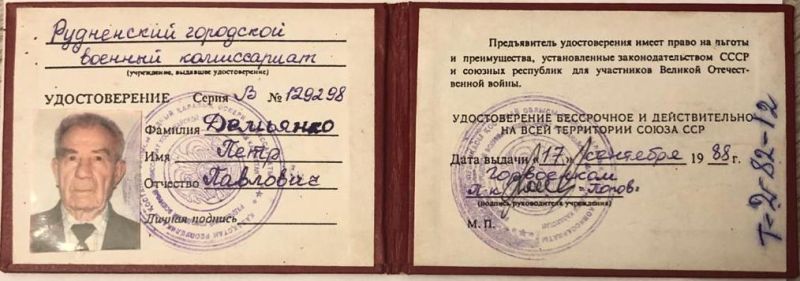 Рудненский городской
военный комиссариат
(учреждение, выдавшее удостоверение)
УДОСТОВЕРЕНИЕ Серия В № 129298
Фамилия Демьянко
Имя Петр
Отчество Павлович
Личная подпись
Предъявитель удостоверения имеет право на льготы
и преимущества, установленные законодательством СССР
и союзных республик для участников Великой Отечест-
венной войны.
УДОСТОВЕРЕНИЕ БЕССРОЧНОЕ И ДЕЙСТВИТЕЛЬНО
НА ВСЕЙ ТЕРРИТОРИИ СОЮЗА ССР
Дата выдачи «17» сентября 1988 г.
Горвоенком
П-к Попов
(подпись руководителя учреждения)
М. П.
Т-2-82-12